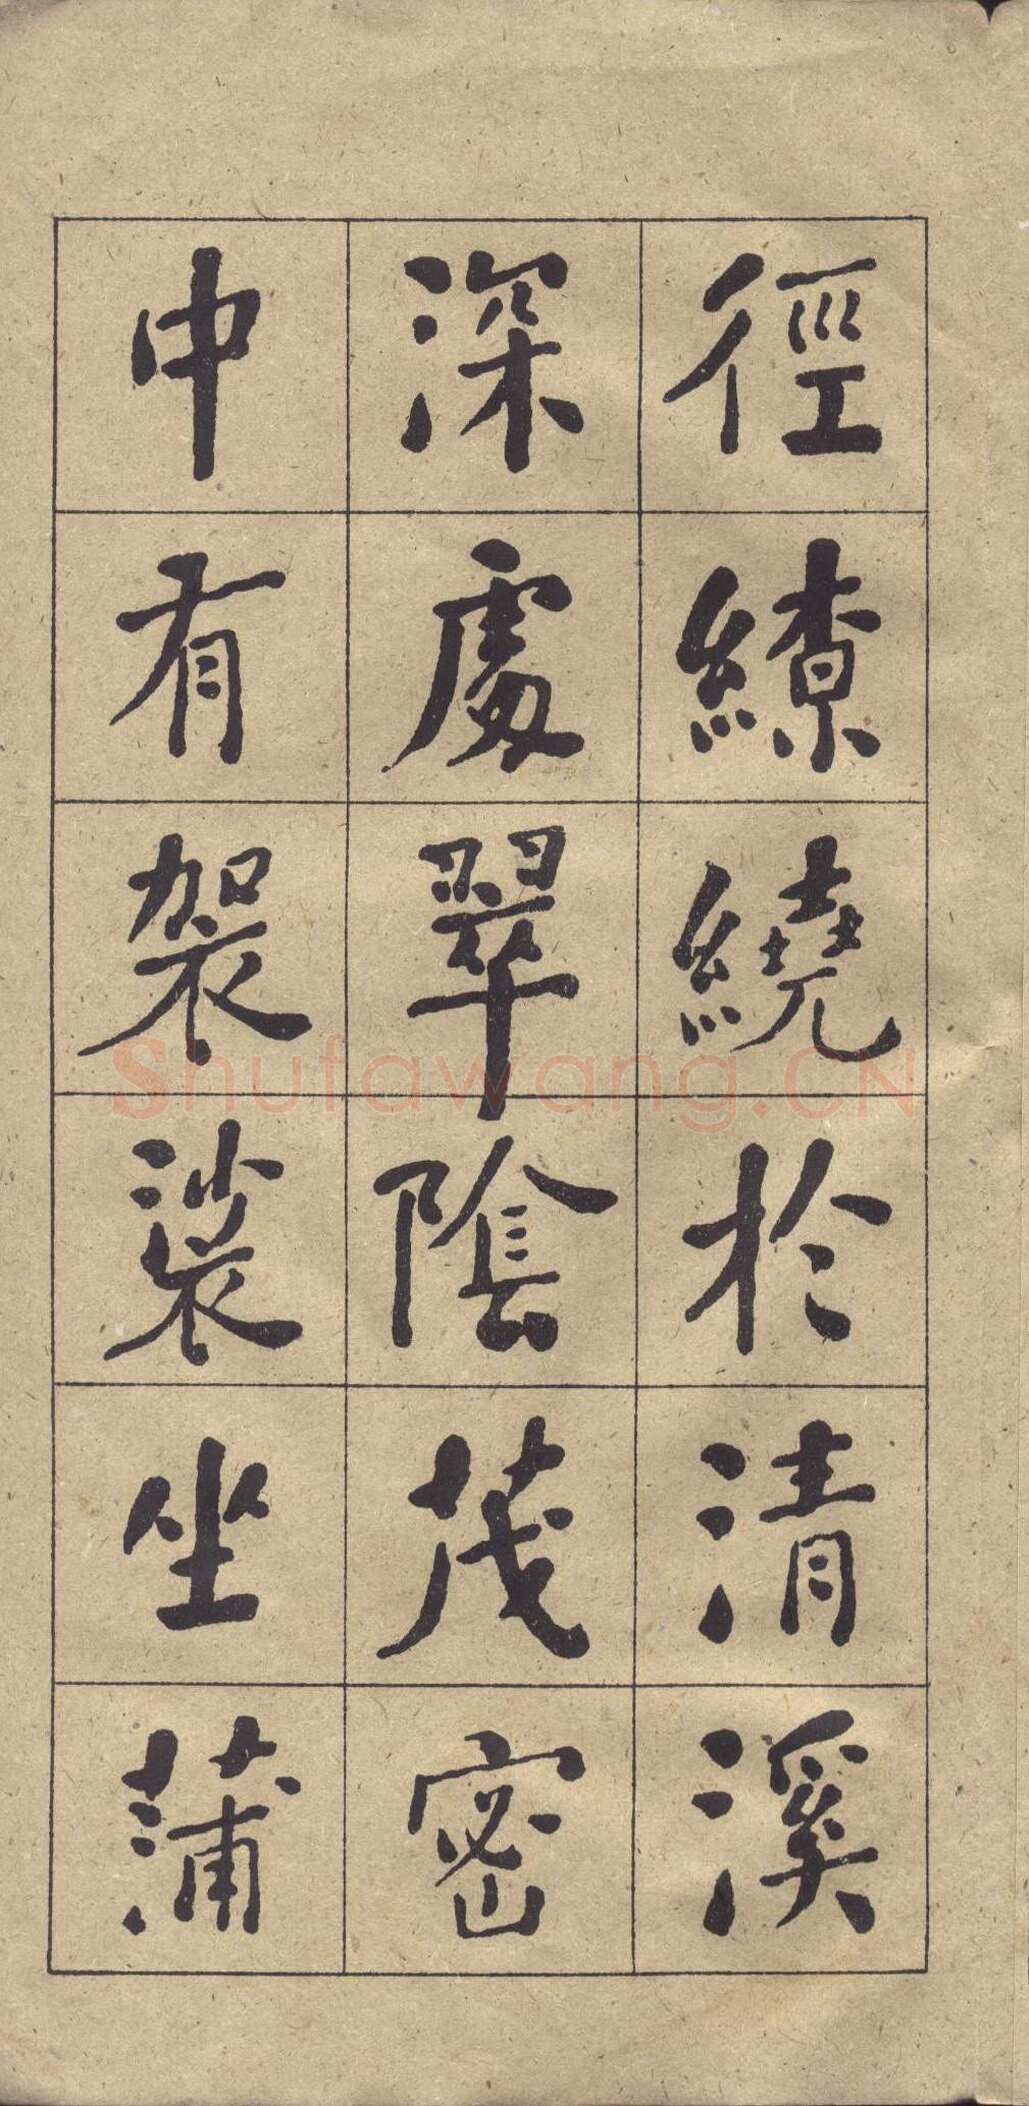 徑繚繞於清溪
深處翠陰茂密
中有袈裟坐蒲
Shufawang.CN